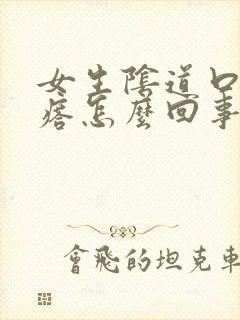 女生陰道口
痞怎麼回事
會飛的坦克車